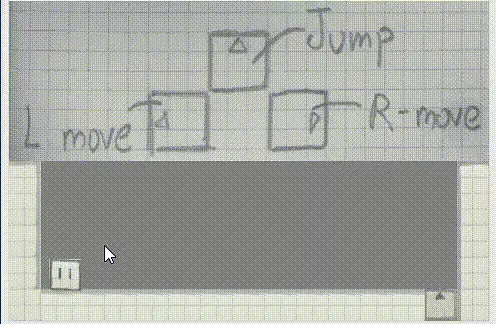 Jump
L move
R-move